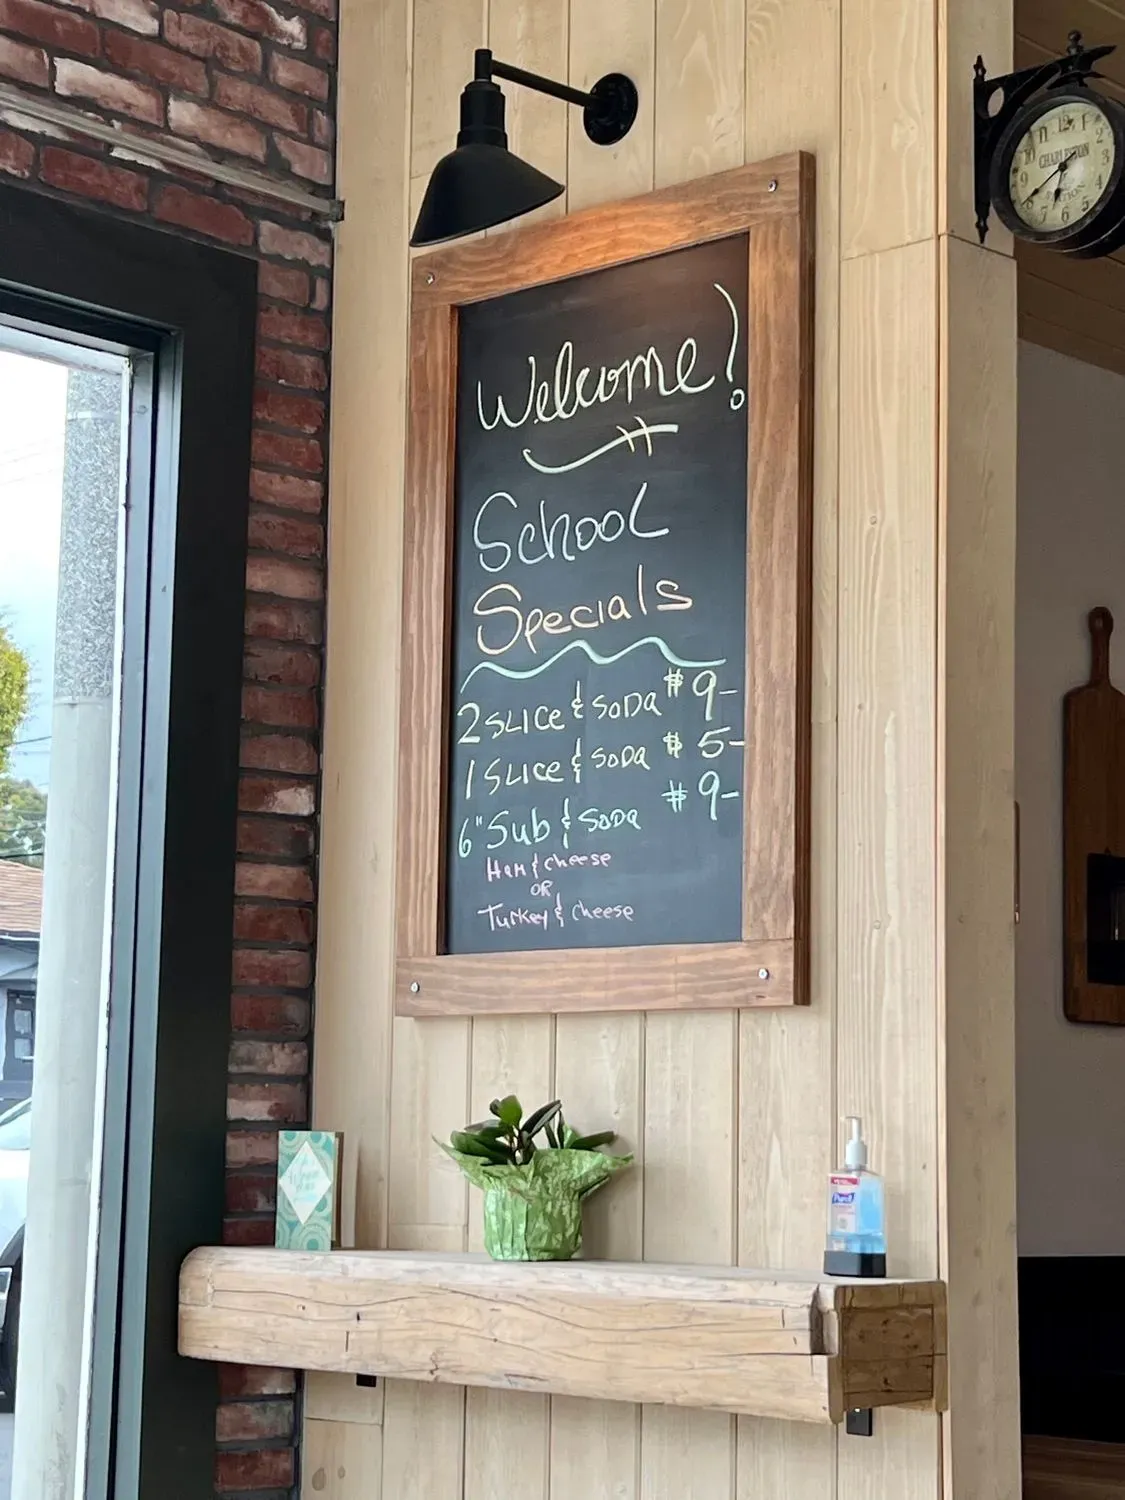 Welcome!
School
Specials
2 SLICE & SODA $ 9-
1 SLICE & SODA $ 5-
6" Sub & SODA $ 9-
Ham & cheese
OR
Turkey & cheese
CHARLESTON
STATION
Purell